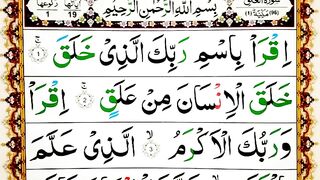 سورة العلق
بِسْمِ اللّٰهِ الرَّحْمٰنِ الرَّحِيْمِ
اِقْرَاْ بِاسْمِ رَبِّكَ الَّذِىْ خَلَقَ ۚ ١
خَلَقَ الْاِنْسَانَ مِنْ عَلَقٍ ۚ ٢ اِقْرَاْ
وَرَبُّكَ الْاَكْرَمُ ۙ ٣ الَّذِىْ عَلَّمَ